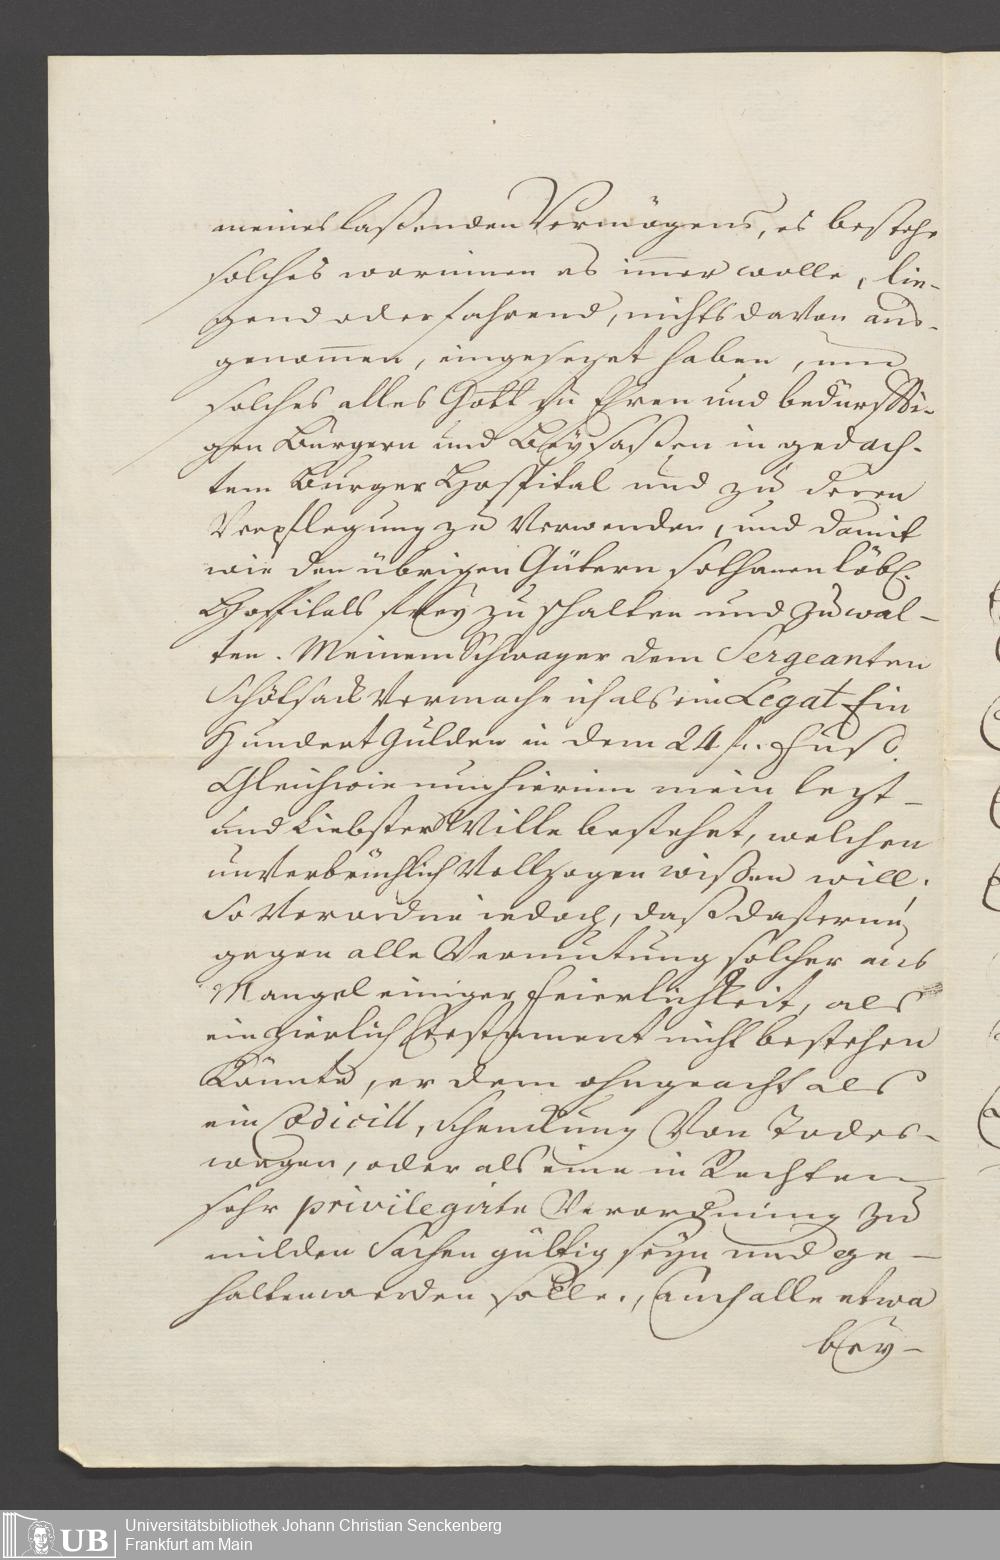 meines laßenden Vermögens, es bestehe
solches worinnen es im̅er wolle, lie-
gend oder fahrend, nichts davon aus-
genom̅en, eingesezet haben, um
solches alles Gott zu Ehren und bedürffti-
gen Burgern und Beysaßen in gedach-
tem Burger Hospital und zu deren
Verpflegung zu Verwenden, und damit
wie den übrigen Gütern sothanen löbl.
Hospitals frey zu schalten und zu wal-
ten. Meinem Schwager dem Sergeanten
Schölsack Vermache ich als ein Legat Ein
Hundert Gulden in dem 24 fl. Fuß.
Gleichwie nun hierinn mein lezt-
und Liebster Wille bestehet, welchen
unverbrüchlich Vollzogen wißen will.
So Verordne iedoch, daß daferne
gegen alle Vermutung solcher aus
Mangel einiger Feierlichkeit, als
ein zierlich Testament nicht bestehen
Könnte, er dem ohngeacht als
ein Codicill, Schenckung Von Todes-
wegen, oder als eine in Rechten
sehr privilegirte Verordnung zu
milden Sachen gültig seyn und ge-
halten werden solle., Auch alle etwa
bey-
UB
Universitätsbibliothek Johann Christian Senckenberg
Frankfurt am Main